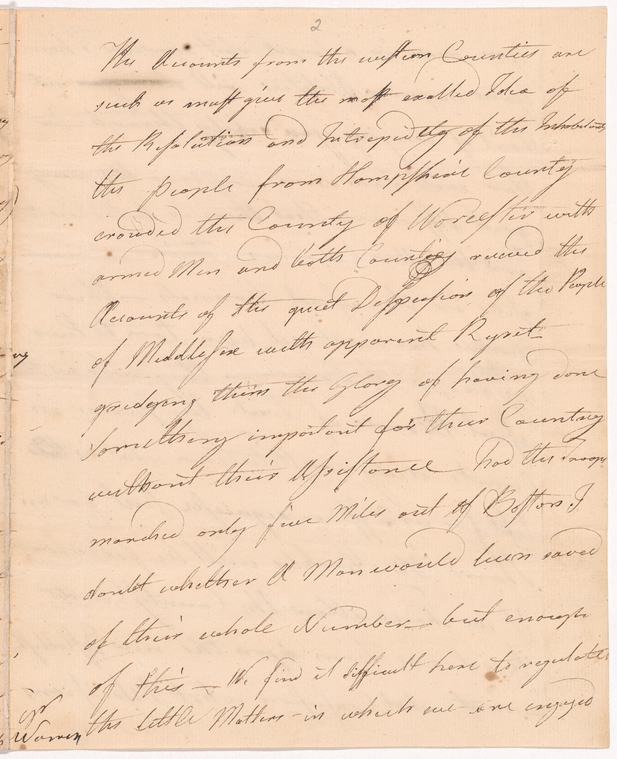 2
The Accounts from the western Counties are
such as must give the most exalted Idea of
the Resolution and Intrepidity of the Inhabitants
the People from Hampshire County
crouded the County of Worcester with
armed Men and both Counties received the
Accounts of the quiet Dispersion of the People
of Middlesex with apparent Regret
grudging them the Glory of having done
something important for their Country
without their Assistance had the Troops
marched only five Miles out of Boston I
doubt whether a Man would been saved
of their whole Number — but enough
of this — We find it difficult here to regulate
the little Matters in which we are engaged
Warren